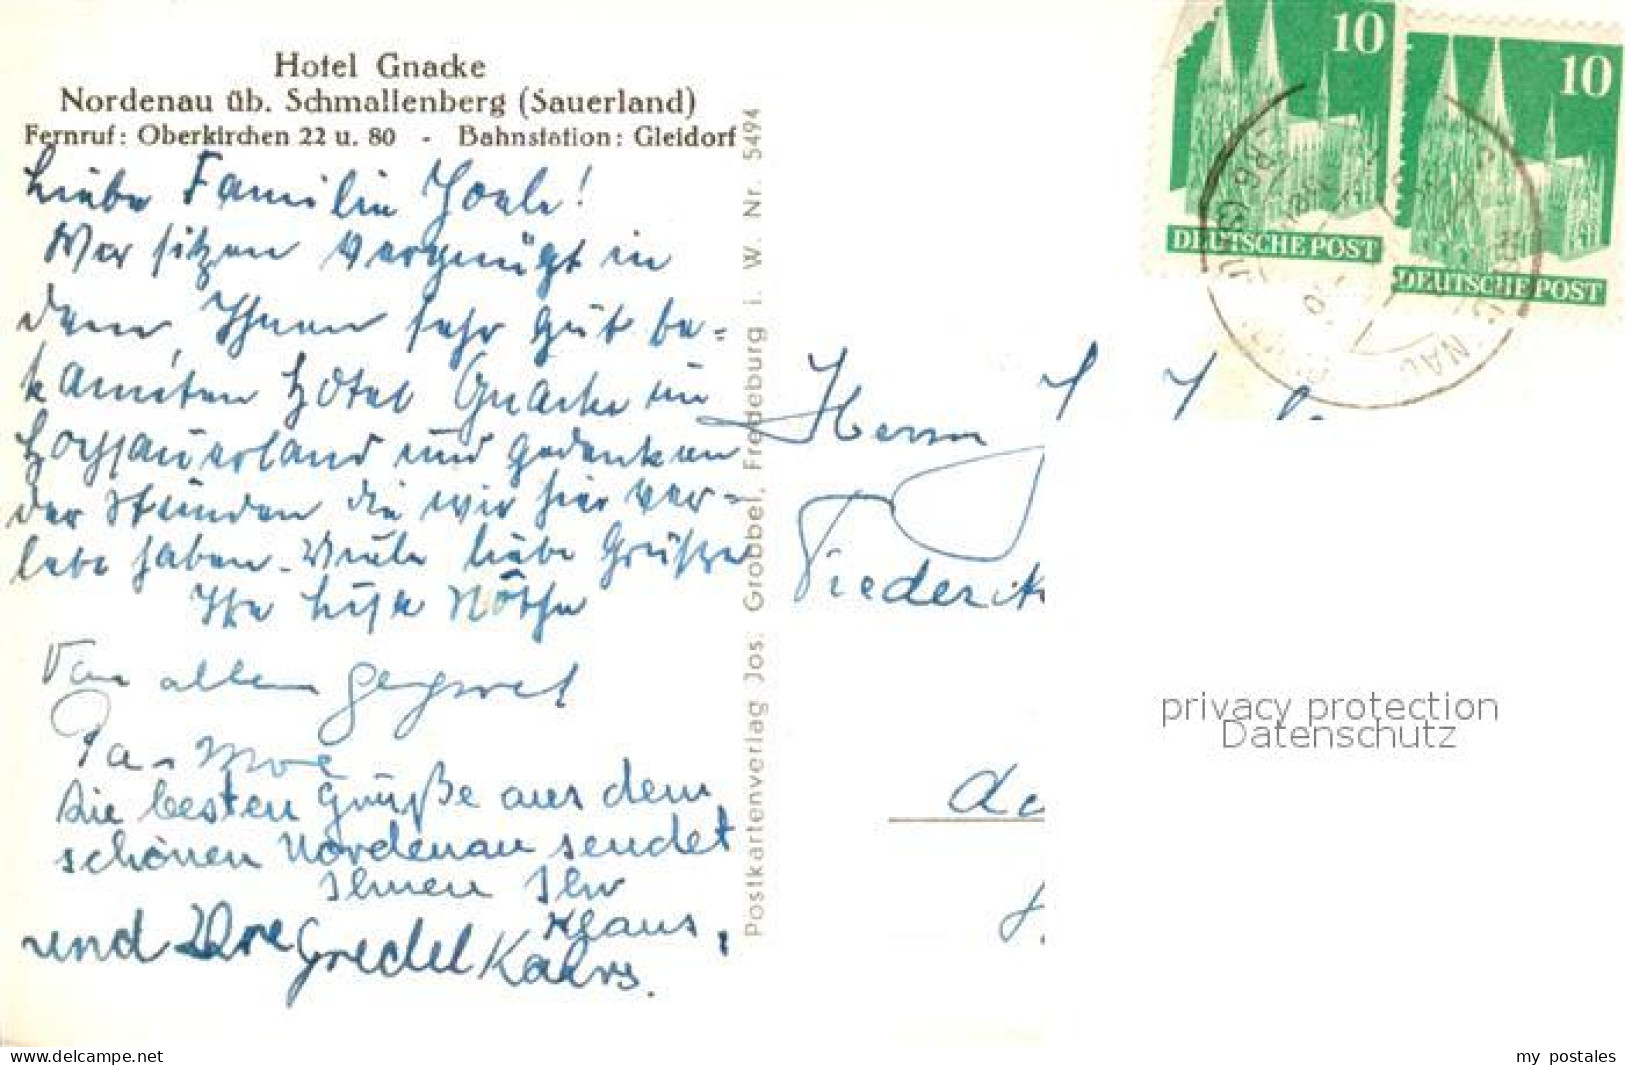 Hotel Gnacke
Nordenau üb. Schmallenberg (Sauerland)
Fernruf: Oberkirchen 22 u. 80 - Bahnstation: Gleidorf
Liebe Familie
Wir sitzen vergnügt in
dem, Ihnen sehr gut be=
kannten Hotel Gnacke im
Hochsauerland und gedenken
der Stunden die wir hier ver=
lebt haben. Viele liebe Grüße
Ihre
Von allem
die besten Grüße aus dem
schönen Nordenau sendet
Ihnen Ihr
Klaus,
und Ihre Gredel
Postkartenverlag Jos. Grobbel, Fredeburg i. W. Nr. 5494
10
DEUTSCHE POST
10
DEUTSCHE POST
Herrn
privacy protection
Datenschutz
www.delcampe.net
my_postales